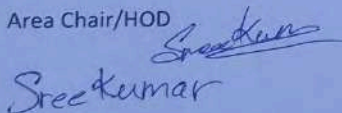 Area Chair/HOD
SreeKum
SreeKumar